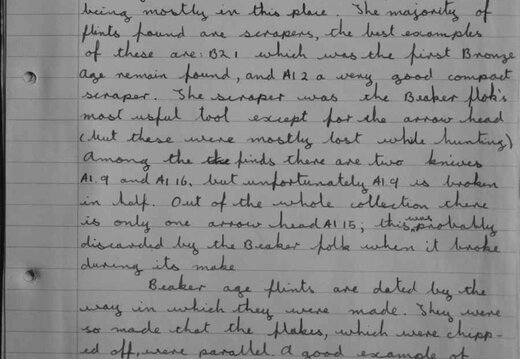 being mostly in this place. The majority of
flints found are scrapers, the best examples
of these are: B2 1 which was the first Bronze
age remain found, and A1 2 a very good compact
scraper. The scraper was the Beaker flok's
most usful tool except for the arrow head
(but these were mostly lost while hunting)
Among the the finds there are two knives
A1 9 and A1 16, but unfortunately A1 9 is broken
in half. Out of the whole collection there
is only one arrow head A1 15; this was probably
discarded by the Beaker folk when it broke
during its make
Beaker age flints are dated by the
way in which they were made. They were
so made that the flakes, which were chipp-
ed off, were parallel. A good example of